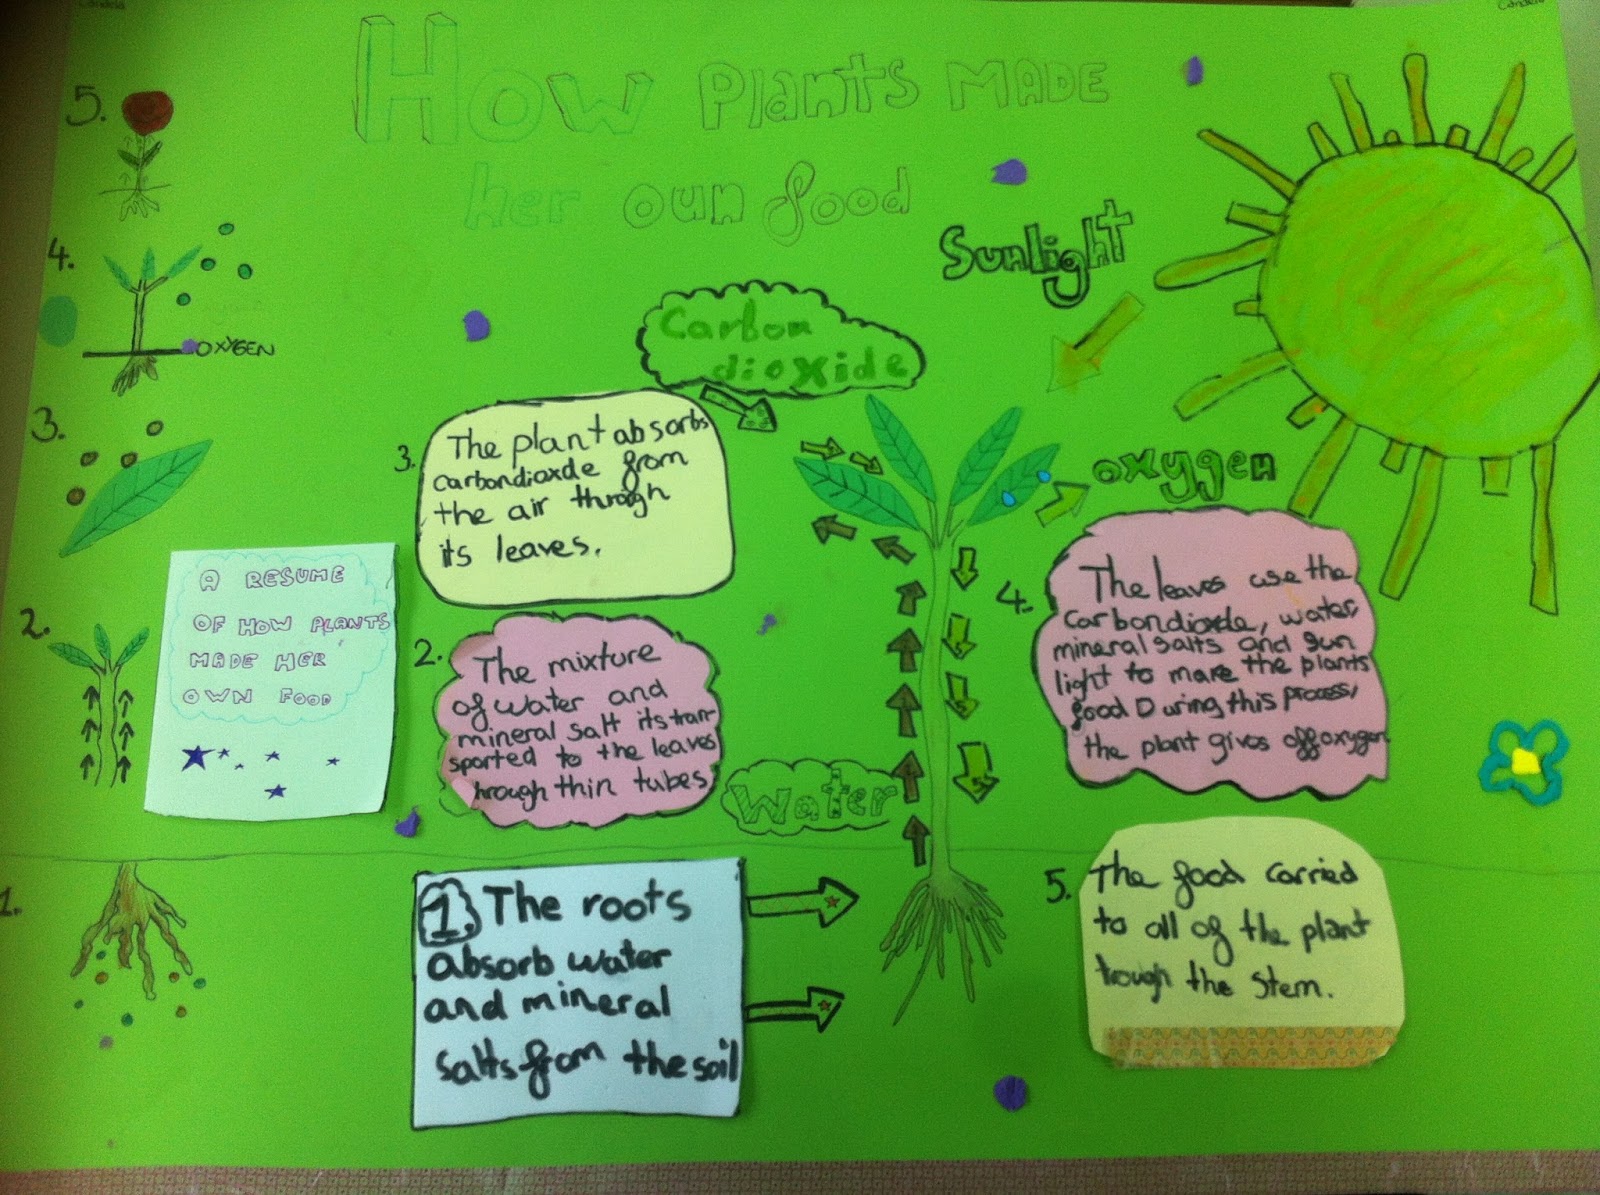 Candela
Candela
How Plants MADE
her oun food
5.
4.
OXYGEN
3.
2.
1.
A RESUME
OF HOW PLANTS
MADE HER
OWN FOOD
Sunlight
Carbon
dioxide
oxygen
Water
3. The plant absorbs
carbondioxde from
the air through
its leaves.
2. The mixture
of water and
mineral salt its tran-
sported to the leaves
hrough thin tubes
1. The roots
absorb water
and mineral
salts from the soil
4. The leaves use the
carbondioxde, water,
mineral salts and sun
light to make the plants
food During this process,
the plant gives off oxygen
5. The food carried
to all of the plant
trough the stem.